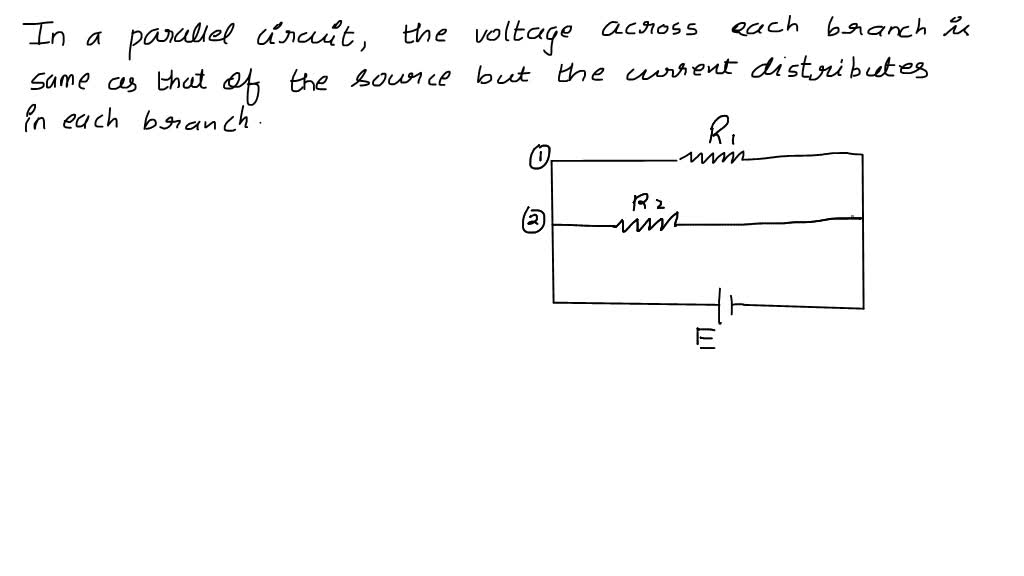 In a parallel circuit, the voltage across each branch is
same as that of the source but the current distributes
in each branch.
R1
①
R2
②
E